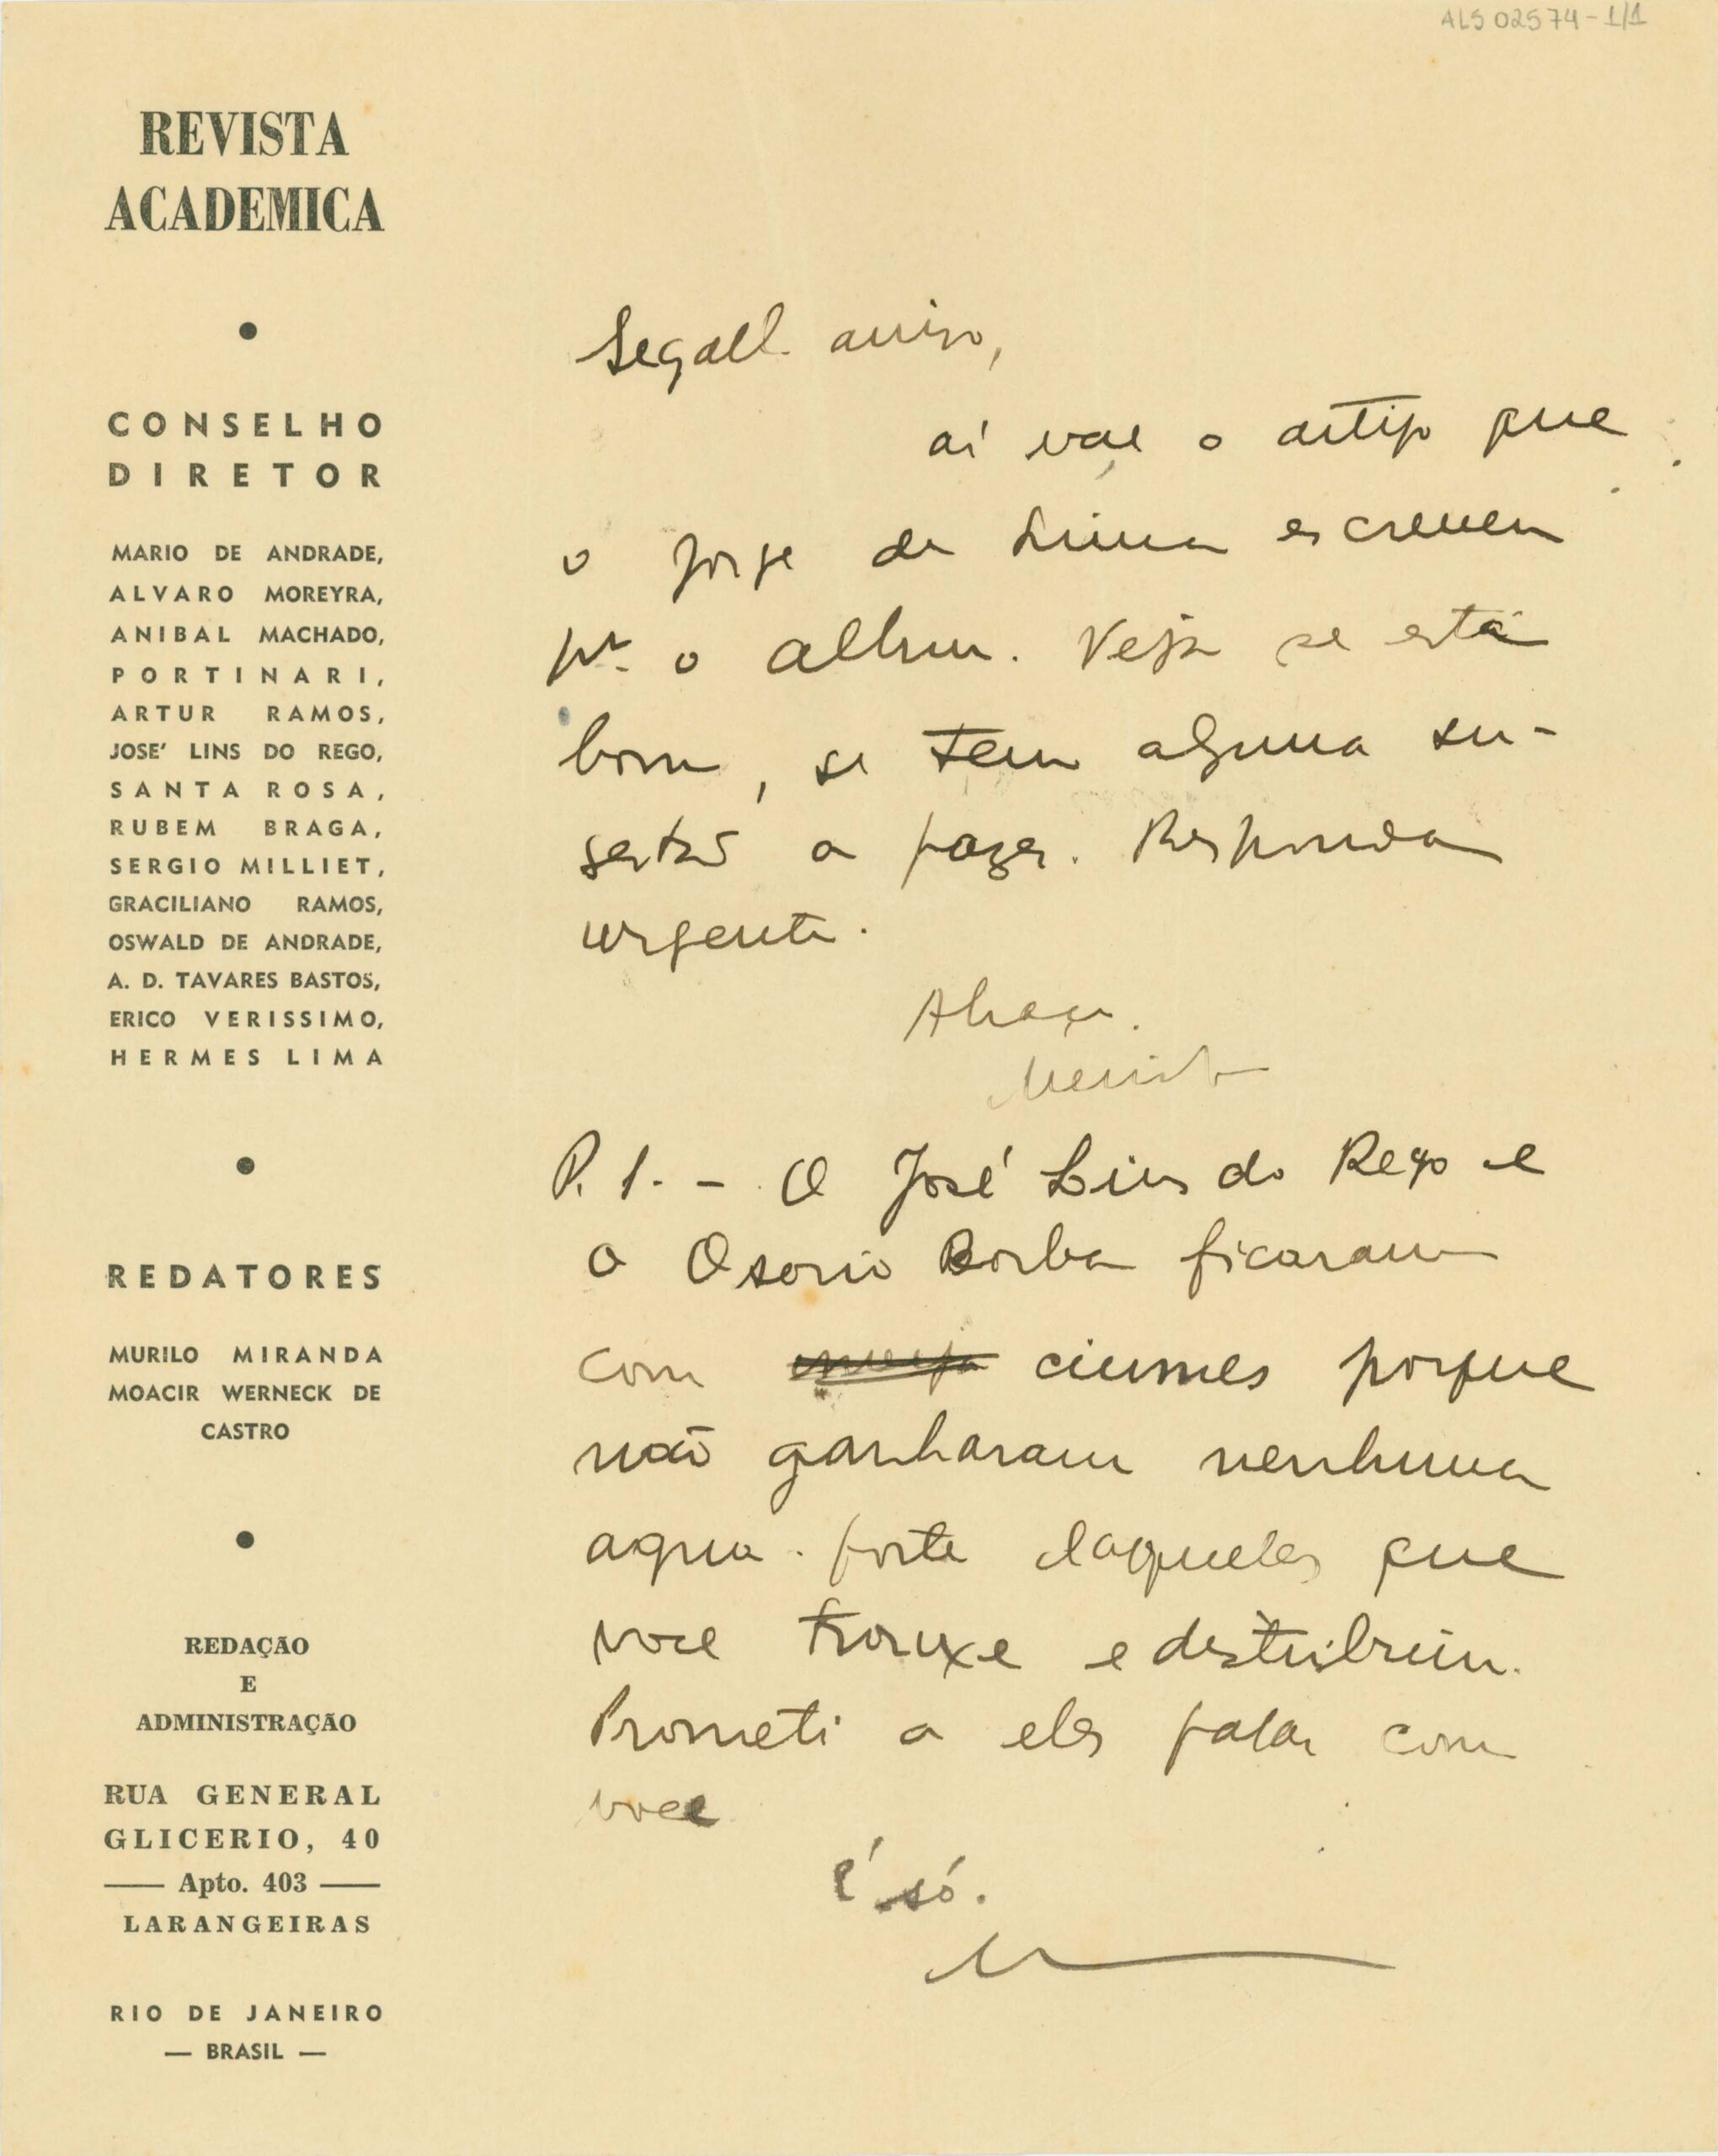 ALS 02574-1/1
REVISTA
ACADEMICA
CONSELHO
DIRETOR
MARIO DE ANDRADE,
ALVARO MOREYRA,
ANIBAL MACHADO,
PORTINARI,
ARTUR RAMOS,
JOSE' LINS DO REGO,
SANTA ROSA,
RUBEM BRAGA,
SERGIO MILLIET,
GRACILIANO RAMOS,
OSWALD DE ANDRADE,
A. D. TAVARES BASTOS,
ERICO VERISSIMO,
HERMES LIMA
REDATORES
MURILO MIRANDA
MOACIR WERNECK DE
CASTRO
REDAÇÃO
E
ADMINISTRAÇÃO
RUA GENERAL
GLICERIO, 40
— Apto. 403 —
LARANGEIRAS
RIO DE JANEIRO
— BRASIL —
Segall amigo,
aí vae o artigo que
o Jorge de Lima escreveu
pª o album. Veja se está
bom, se tem alguma su-
gestão a fazer. Responda
urgente.
Abraço.
P. S. - O José Lins do Rego e
o Osorio Borba ficaram
com inveja ciumes porque
não ganharam nenhuma
agua-forte daquelas que
voce trouxe e distribuiu.
Prometi a eles falar com
voce
É só.
M